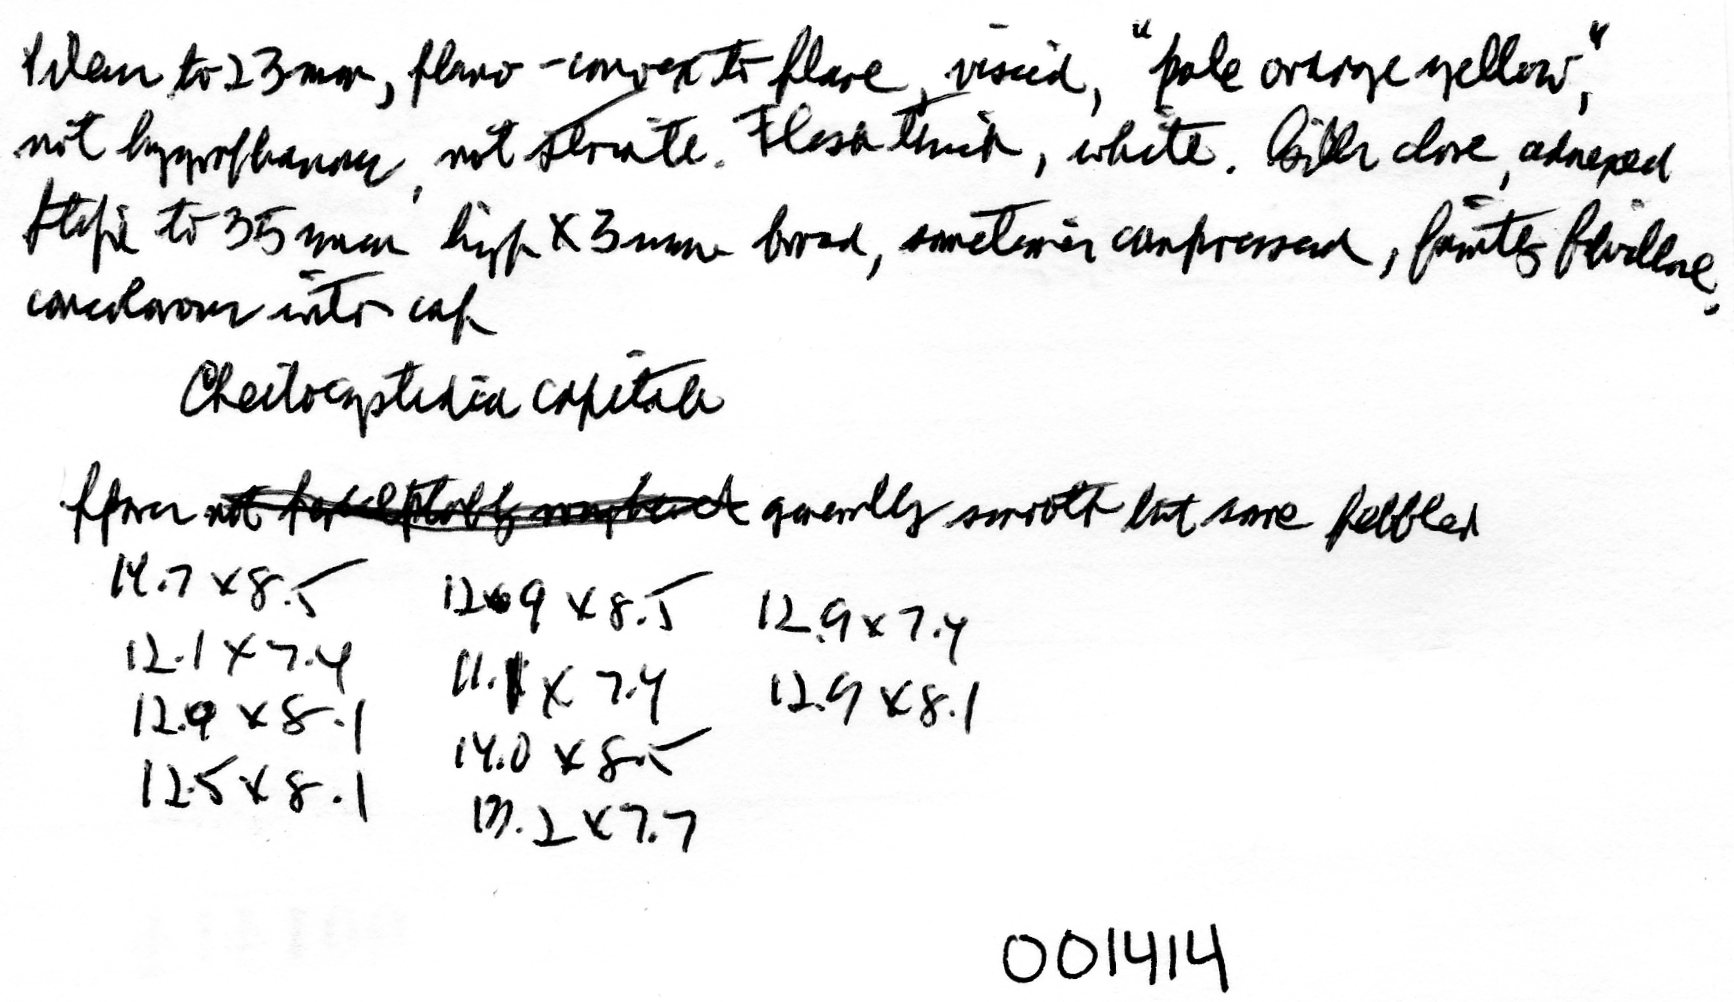 Pileus to 23 mm, plano-convex to plane, viscid, "pale orange yellow,"
not hygrophanous, not striate. Flesh thick, white. Gills close, adnexed
Stipe to 35 mm high x 3 mm broad, sometimes compressed, faintly fibrillose,
concolorous with cap
Cheilocystidia capitate
Spores generally smooth but some pebbled
14.7 x 8.5 12.9 x 8.5 12.9 x 7.4
12.1 x 7.4 11.1 x 7.4 12.9 x 8.1
12.9 x 8.1 14.0 x 8.5
12.5 x 8.1 13.2 x 7.7
001414